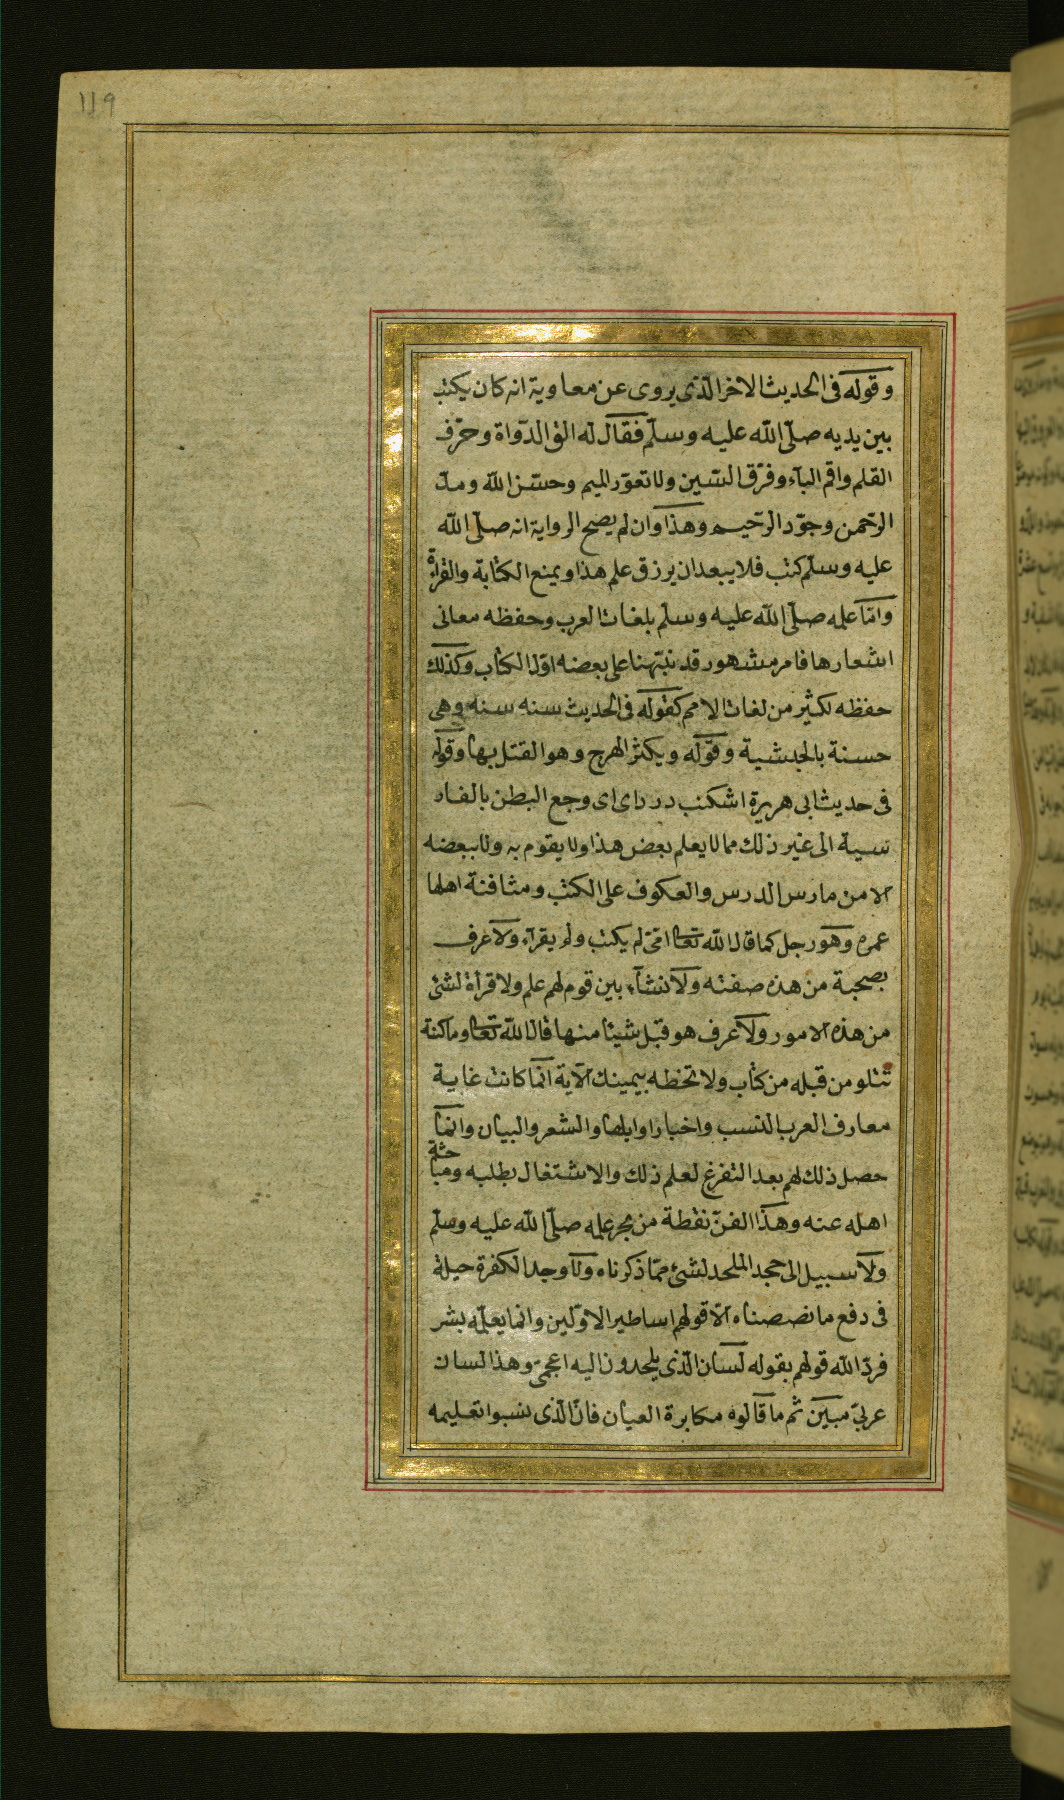 119
وقوله فى الحديث الاخر الّذى يروى عن معاوية انه كان يكتب
بين يديه صلّى الله عليه وسلّم فقال له الق الدّواة وحرّف
القلم واقم الباء وفرّق السّين ولا تعوّر الميم وحسّن الله ومدّ
الرّحمن وجوّد الرّحيم وهذا وان لم يصح الرواية انه صلّى الله
عليه وسلّم كتب فلا يبعد ان يرزق علم هذا ويمنع الكتابة والقراءة
وامّا علمه صلّى الله عليه وسلّم بلغات العرب وحفظه معانى
اشعارها فامر مشهور قد نبّهنا على بعضه اوّل الكتاب وكذلك
حفظه لكثير من لغات الامم كقوله فى الحديث سنه سنه وهى
حسنة بالحبشية وقوله ويكثر الهرج وهو القتل بها وقوله
فى حديث ابى هريرة اشكنب درد اى اى وجع البطن بالفار
سية الى غير ذلك مما لا يعلم بعض هذا ولا يقوم به ولا ببعضه
الا من مارس الدرس والعكوف على الكتب ومثافنة اهلها
عمره وهو رجل كما قال الله تعا امّىّ لم يكتب ولم يقرأ ولا عرف
بصحبة من هذه صفته ولا نشأ بين قوم لهم علم ولا قرأة لشئ
من هذه الامور ولا عرف هو قبل شيئا منها قال الله تعا وما كنة
تتلو من قبله من كتاب ولا تخطه بيمينك الآية انّما كانت غاية
معارف العرب النسب واخبار اوايلها والشعر والبيان وانّما
حصل ذلك لهم بعد التفرغ لعلم ذلك والاشتغال بطلبه ومباحثة
اهله عنه وهذا الفنّ نقطة من بحر علمه صلّى الله عليه وسلّم
ولا سبيل الى جحد الملحد لشئ ممّا ذكرناه ولا وجد الكفرة حيلة
فى دفع ما نصصناه الّا قولهم اساطير الاوّلين وانما يعلّمه بشر
فردّ الله قولهم بقوله لسان الّذى يلحدون اليه اعجمىّ وهذا لسان
عربىّ مبين ثم ما قالوه مكابرة العيان فانّ الّذى نسبوا تعليمه